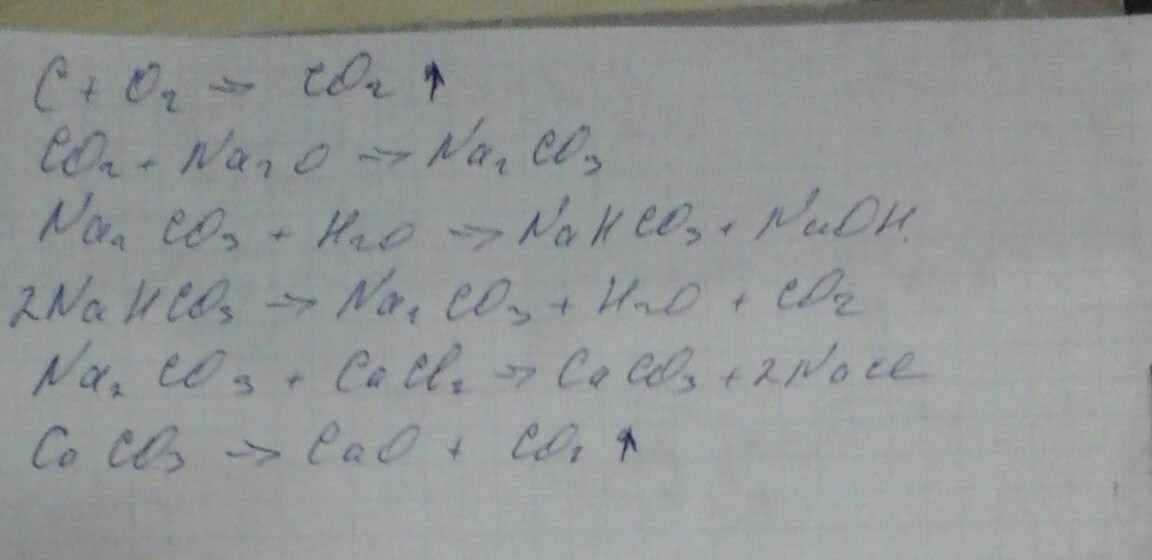 C + O₂ → CO₂ ↑
CO₂ + Na₂O → Na₂CO₃
Na₂CO₃ + H₂O → NaHCO₃ + NaOH.
2NaHCO₃ → Na₂CO₃ + H₂O + CO₂
Na₂CO₃ + CaCl₂ → CaCO₃ + 2NaCl
CaCO₃ → CaO + CO₂ ↑